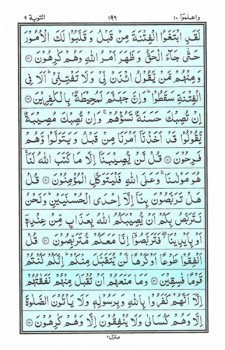 واعلموا ١٠ ١٩٦ التوبة ٩
لَقَدِ ابْتَغَوُا الْفِتْنَةَ مِنْ قَبْلُ وَقَلَّبُوْا لَكَ الْاُمُوْرَ
حَتّٰى جَآءَ الْحَقُّ وَظَهَرَ اَمْرُ اللّٰهِ وَهُمْ كٰرِهُوْنَ ۝
وَمِنْهُمْ مَّنْ يَّقُوْلُ ائْذَنْ لِّيْ وَلَا تَفْتِنِّيْ ؕ اَلَا فِي
الْفِتْنَةِ سَقَطُوْا ؕ وَاِنَّ جَهَنَّمَ لَمُحِيْطَةٌۢ بِالْكٰفِرِيْنَ ۝
اِنْ تُصِبْكَ حَسَنَةٌ تَسُؤْهُمْ ۚ وَاِنْ تُصِبْكَ مُصِيْبَةٌ
يَّقُوْلُوْا قَدْ اَخَذْنَاۤ اَمْرَنَا مِنْ قَبْلُ وَيَتَوَلَّوْا وَّهُمْ
فَرِحُوْنَ ۝ قُلْ لَّنْ يُّصِيْبَنَاۤ اِلَّا مَا كَتَبَ اللّٰهُ لَنَا ۚ
هُوَ مَوْلٰىنَا ۚ وَعَلَى اللّٰهِ فَلْيَتَوَكَّلِ الْمُؤْمِنُوْنَ ۝ قُلْ
هَلْ تَرَبَّصُوْنَ بِنَاۤ اِلَّاۤ اِحْدَى الْحُسْنَيَيْنِ ؕ وَنَحْنُ
نَتَرَبَّصُ بِكُمْ اَنْ يُّصِيْبَكُمُ اللّٰهُ بِعَذَابٍ مِّنْ عِنْدِهٖۤ
اَوْ بِاَيْدِيْنَا ۖ فَتَرَبَّصُوْۤا اِنَّا مَعَكُمْ مُّتَرَبِّصُوْنَ ۝ قُلْ
اَنْفِقُوْا طَوْعًا اَوْ كَرْهًا لَّنْ يُّتَقَبَّلَ مِنْكُمْ ؕ اِنَّكُمْ كُنْتُمْ
قَوْمًا فٰسِقِيْنَ ۝ وَمَا مَنَعَهُمْ اَنْ تُقْبَلَ مِنْهُمْ نَفَقٰتُهُمْ
اِلَّاۤ اَنَّهُمْ كَفَرُوْا بِاللّٰهِ وَبِرَسُوْلِهٖ وَلَا يَاْتُوْنَ الصَّلٰوةَ
اِلَّا وَهُمْ كُسَالٰى وَلَا يُنْفِقُوْنَ اِلَّا وَهُمْ كٰرِهُوْنَ ۝
منزل ٢